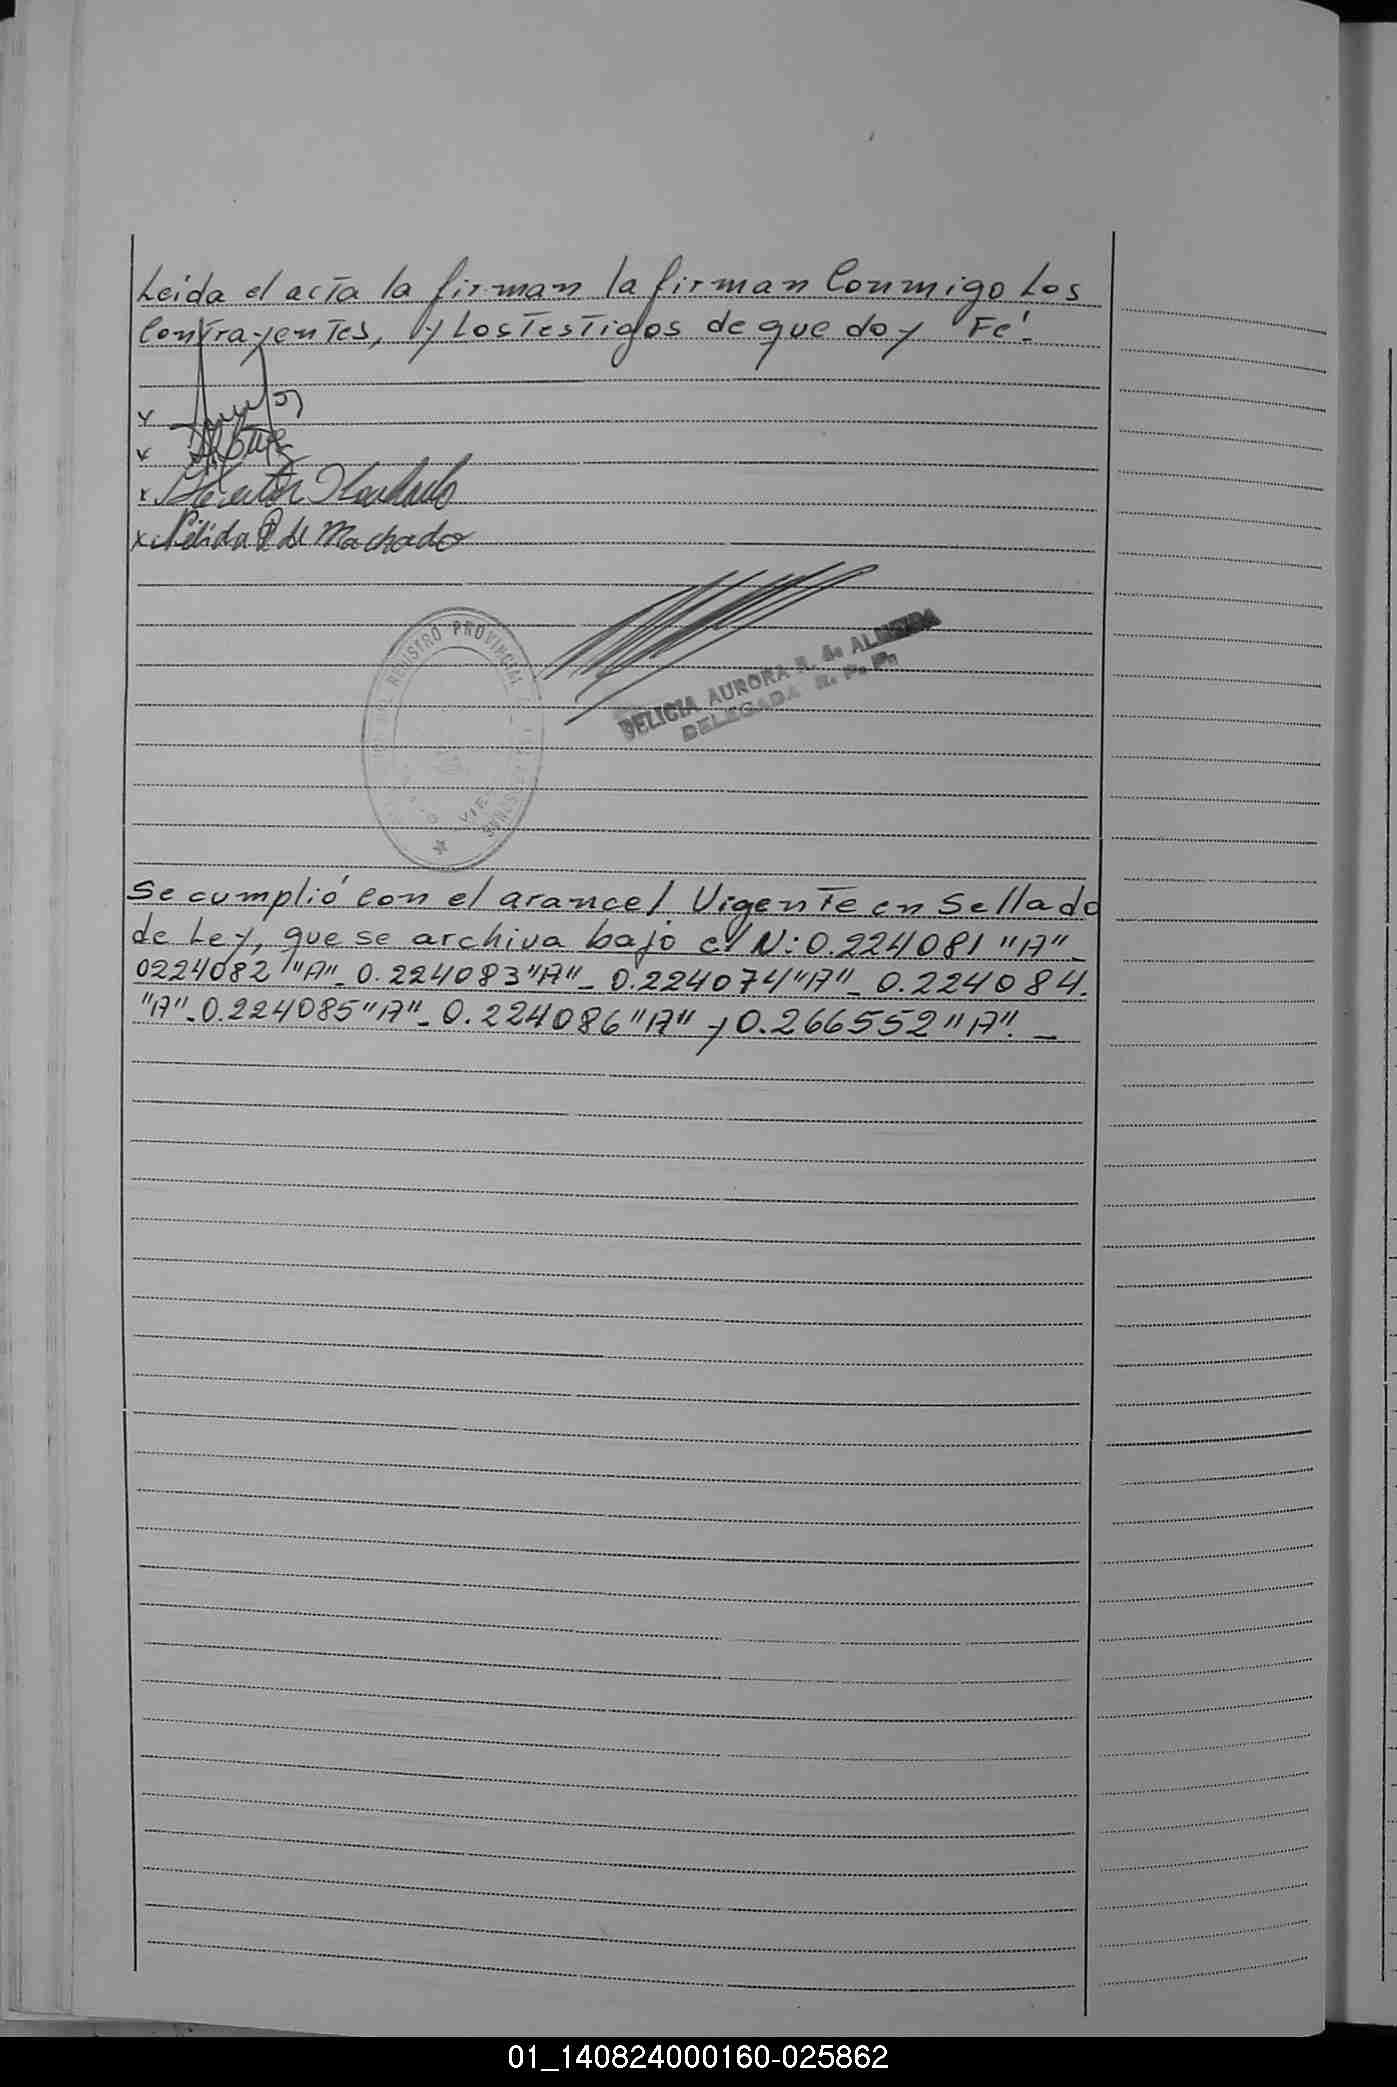 Leida el acta la firman la firman Conmigo Los
Contrayentes, y Los Testigos de que doy Fé.
x
x
x Machado
x Nélida P. de Machado
REGISTRO PROVINCIAL
DELICIA AURORA R. de ALMEIDA
DELEGADA R. P. P.
Se cumplió con el arancel Vigente en Sellado
de Ley, que se archiva bajo el N: 0.224081 "A"_
0224082 "A"_ 0.224083 "A"_ 0.224074 "A"_ 0.224084.
"A"_ 0.224085 "A"_ 0.224086 "A" y 0.266552 "A". _
01_140824000160-025862